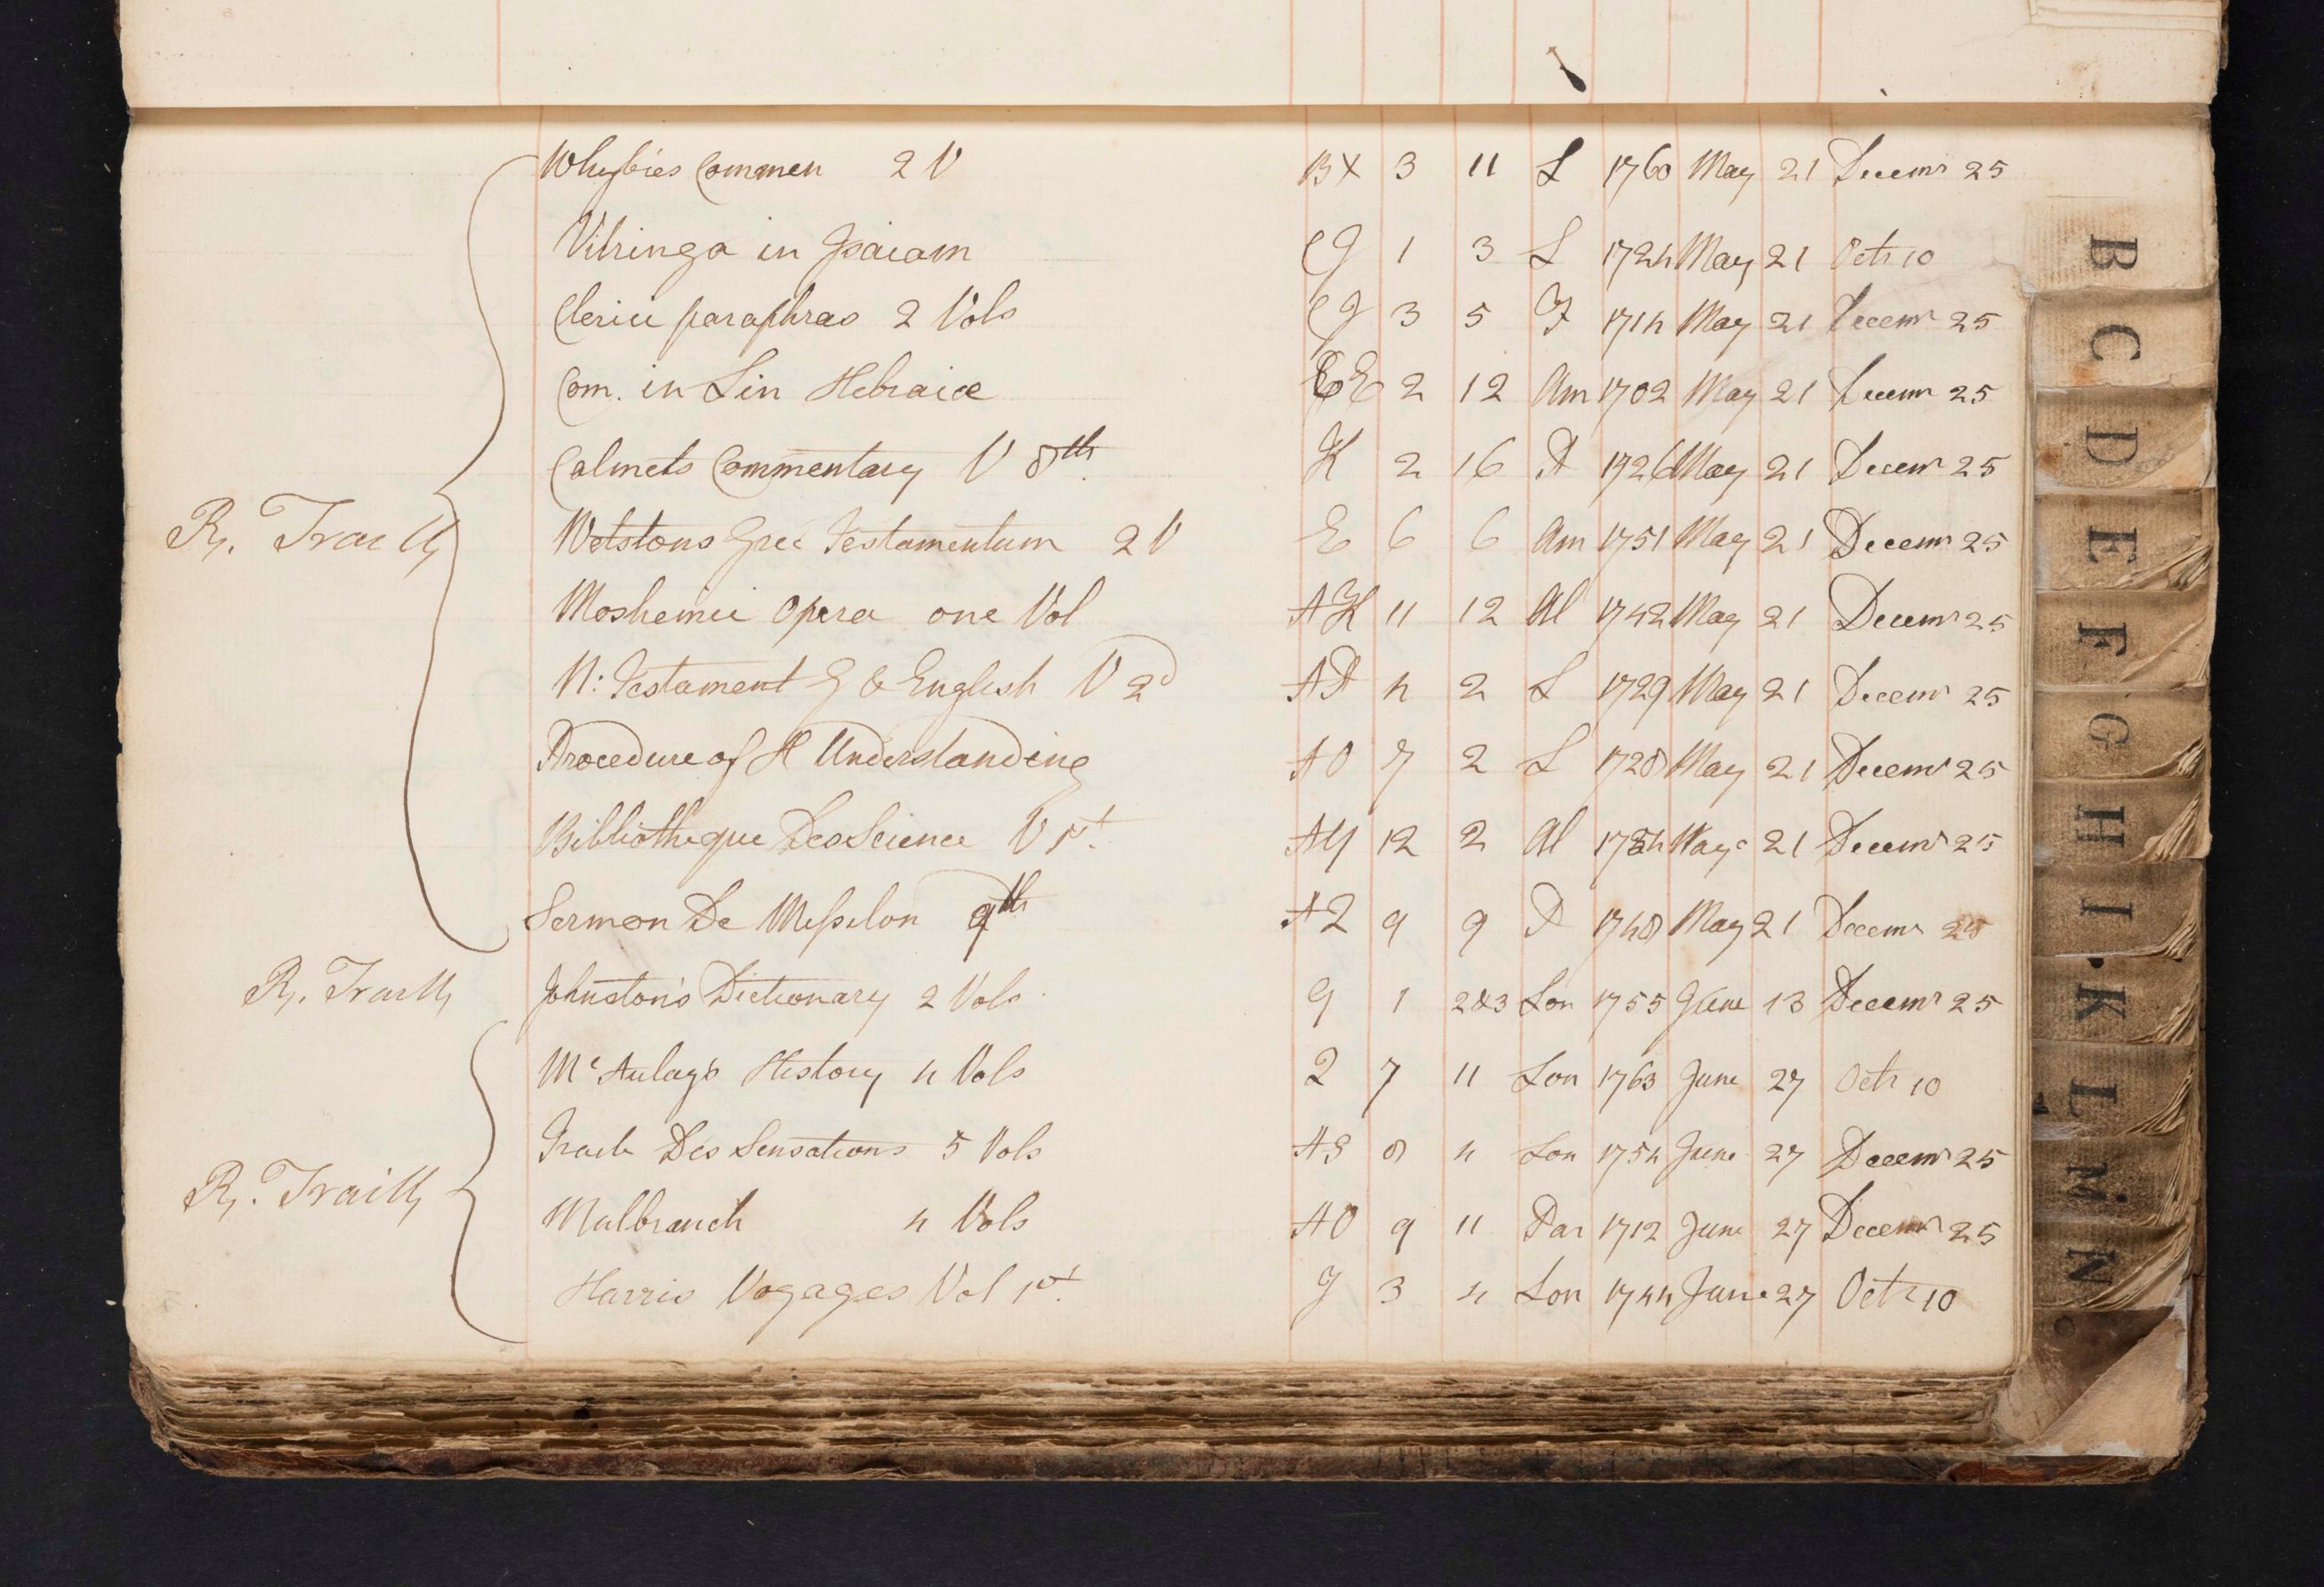 Whybies Commen 2 V BX 3 11 L 1760 May 21 Decemr 25
Vitringa in Isaiam CI 1 3 L 1724 May 21 Octr 10
Clerici paraphras 2 Vols CI 3 5 F 1714 May 21 Decemr 25
Com. in Lin Hebraicæ EE 2 12 Am 1702 May 21 Decemr 25
Calmets Commentary V 8th. K 2 16 P 1726 May 21 Decemr 25
R. Traill
Wetstons Grec Testamentum 2 V E 6 6 Am 1751 May 21 Decemr 25
Moshemii Opera one Vol AK 11 12 Al 1742 May 21 Decemr 25
N: Testament G & English V 2d AP 4 2 L 1729 May 21 Decemr 25
Procedure of H Understanding AO 7 2 L 1728 May 21 Decemr 25
Bibliotheque Des Science V 1st. AY 12 2 Al 1754 May 21 Decemr 25
Sermon De Messilon 9th AZ 9 9 P 1748 May 21 Decemr 25
R. Traill Johnston's Dictionary 2 Vols G 1 2&3 Lon 1755 June 13 Decemr 25
McAulay's History 4 Vols Q 7 11 Lon 1763 June 27 Octr 10
Traite Des Sensations 3 Vols AS 8 4 Lon 1754 June 27 Decemr 25
R. Traill
Malbranch 4 Vols AO 9 11 Par 1712 June 27 Decemr 25
Harris Voyages Vol 1st. I 3 4 Lon 1744 June 27 Octr 10
B
C
D
E
F
G
H
I
K
L
M
N